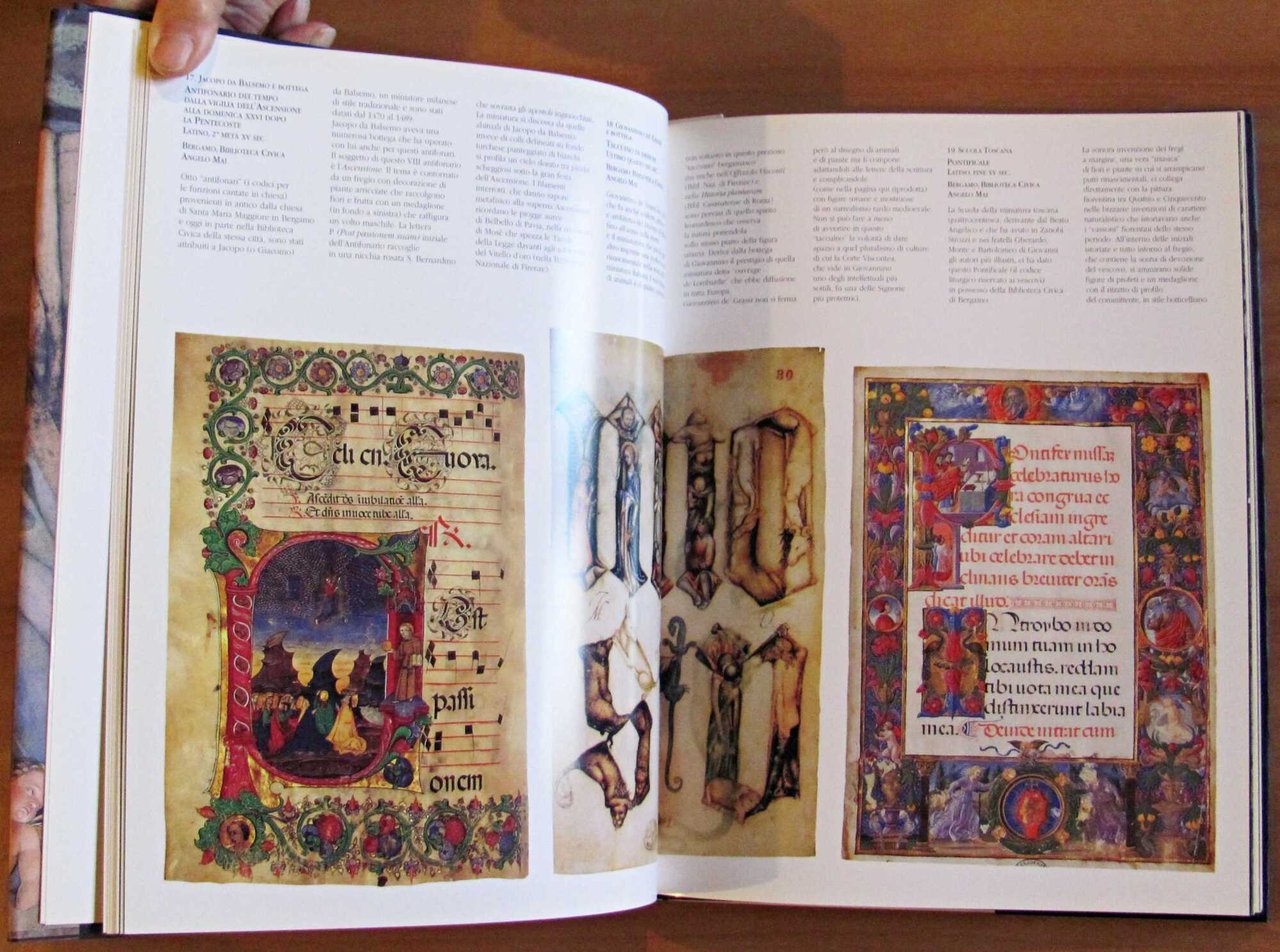 17. Jacopo da Balsemo e bottega
Antifonario del tempo
dalla vigilia dell'Ascensione
alla domenica XXVI dopo
la Pentecoste
Latino, 2ª metà XV sec.
Bergamo, Biblioteca Civica
Angelo Mai
Otto "antifonari" (i codici per
le funzioni cantate in chiesa)
provenienti in antico dalla chiesa
di Santa Maria Maggiore in Bergamo
e oggi in parte nella Biblioteca
Civica della stessa città, sono stati
attribuiti a Jacopo (o Giacomo)
da Balsemo, un miniatore milanese
di stile tradizionale e sono stati
datati dal 1470 al 1489.
Jacopo da Balsemo aveva una
numerosa bottega che ha operato
con lui anche per questi antifonari.
Il soggetto di questo VIII antifonario
è l'Ascensione. Il tema è contornato
da un fregio con decorazione di
piante arricciate che raccolgono
fiori e frutta e con un medaglione
(in fondo a sinistra) che raffigura
un volto maschile. La lettera
P (Post passionem suam) iniziale
dell'Antifonario raccoglie
in una nicchia rosata S. Bernardino
che sovrasta gli apostoli inginocchiati.
La miniatura si discosta da quelle
abituali di Jacopo da Balsemo:
invece di colli delineati su fondo
turchese punteggiato di bianchi
si profila un cielo dorato tra picchi
scheggiosi sono la gran festa
dell'Ascensione. I filamenti
interrotti, che danno sapore
metafisico alla superna Ascensione
ricordano le piogge auree
di Belbello di Pavia, nella
di Mosè che spezza le Tavole
della Legge davanti agli
del Vitello d'oro (nella
Nazionale di Firenze).
18. Giovannino de' Grassi
e bottega
Taccuino di disegni
Ultimo quarto
Bergamo, Biblioteca Civica
Angelo Mai
non soltanto in questo prezioso
"taccuino" bergamasco
ma anche nell'Offiziolo Visconti
(Bibl. Naz. di Firenze) e
nella Historia plantarum
(Bibl. Casanatense di Roma)
sono pervasi di quello spirito
lombardesco che osserva
la natura ponendola
sullo stesso piano della figura
umana. Deriva dalla bottega
di Giovannino il prestigio di quella
miniatura detta "ouvraige
de Lombardie" che ebbe diffusione
in tutta Europa.
Giovannino de' Grassi non si ferma
però al disegno di animali
e di piante ma li compone
adattandoli alle lettere della scrittura
e complicandole
(come nella pagina qui riprodotta)
con figure umane e mostruose
di un surrealismo tardo medioevale.
Non si può fare a meno
di avvertire in questo
"taccuino" la volontà di dare
spazio a quel pluralismo di culture
di cui la Corte Viscontea,
che vide in Giovannino
uno degli intellettuali più
sottili, fu una delle Signorie
più protettrici.
19. Scuola Toscana
Pontificale
Latino, fine XV sec.
Bergamo, Biblioteca Civica
Angelo Mai
La Scuola della miniatura toscana
quattrocentesca, derivante dal Beato
Angelico e che ha avuto in Zanobi
Strozzi e nei fratelli Gherardo
Monte e Bartolomeo di Giovanni
gli autori più illustri, ci ha dato
questo Pontificale (il codice
liturgico riservato ai vescovi)
in possesso della Biblioteca Civica
di Bergamo.
La sontuosa invenzione dei fregi
a margine, una vera "musica"
di fiori e piante su cui si arrampicano
putti rinascimentali, si collega
direttamente con la pittura
fiorentina tra Quattro e Cinquecento
nelle bizzarre invenzioni di carattere
naturalistico che istoriavano anche
i "cassoni" fiorentini dello stesso
periodo. All'interno delle iniziali
istoriate e tutto intorno al fregio,
che contiene la scena di devozione
del vescovo, si ammirano solide
figure di profeti e un medaglione
con il ritratto di profilo
del committente, in stile botticelliano.
Celi en. Cuova.
Est
passi
onem
80
Ontifex missaz
celebraturus ho
ra congrua ec
clesiam ingre
ditur et coram altari
ubi celebrare debet in
clinans breviter orãs
dicat illud.
Ntroybo in do
mum tuam in ho
locaustis. reddam
tibi uota mea que
distinxerunt labia
mea. Deinde intrat cum